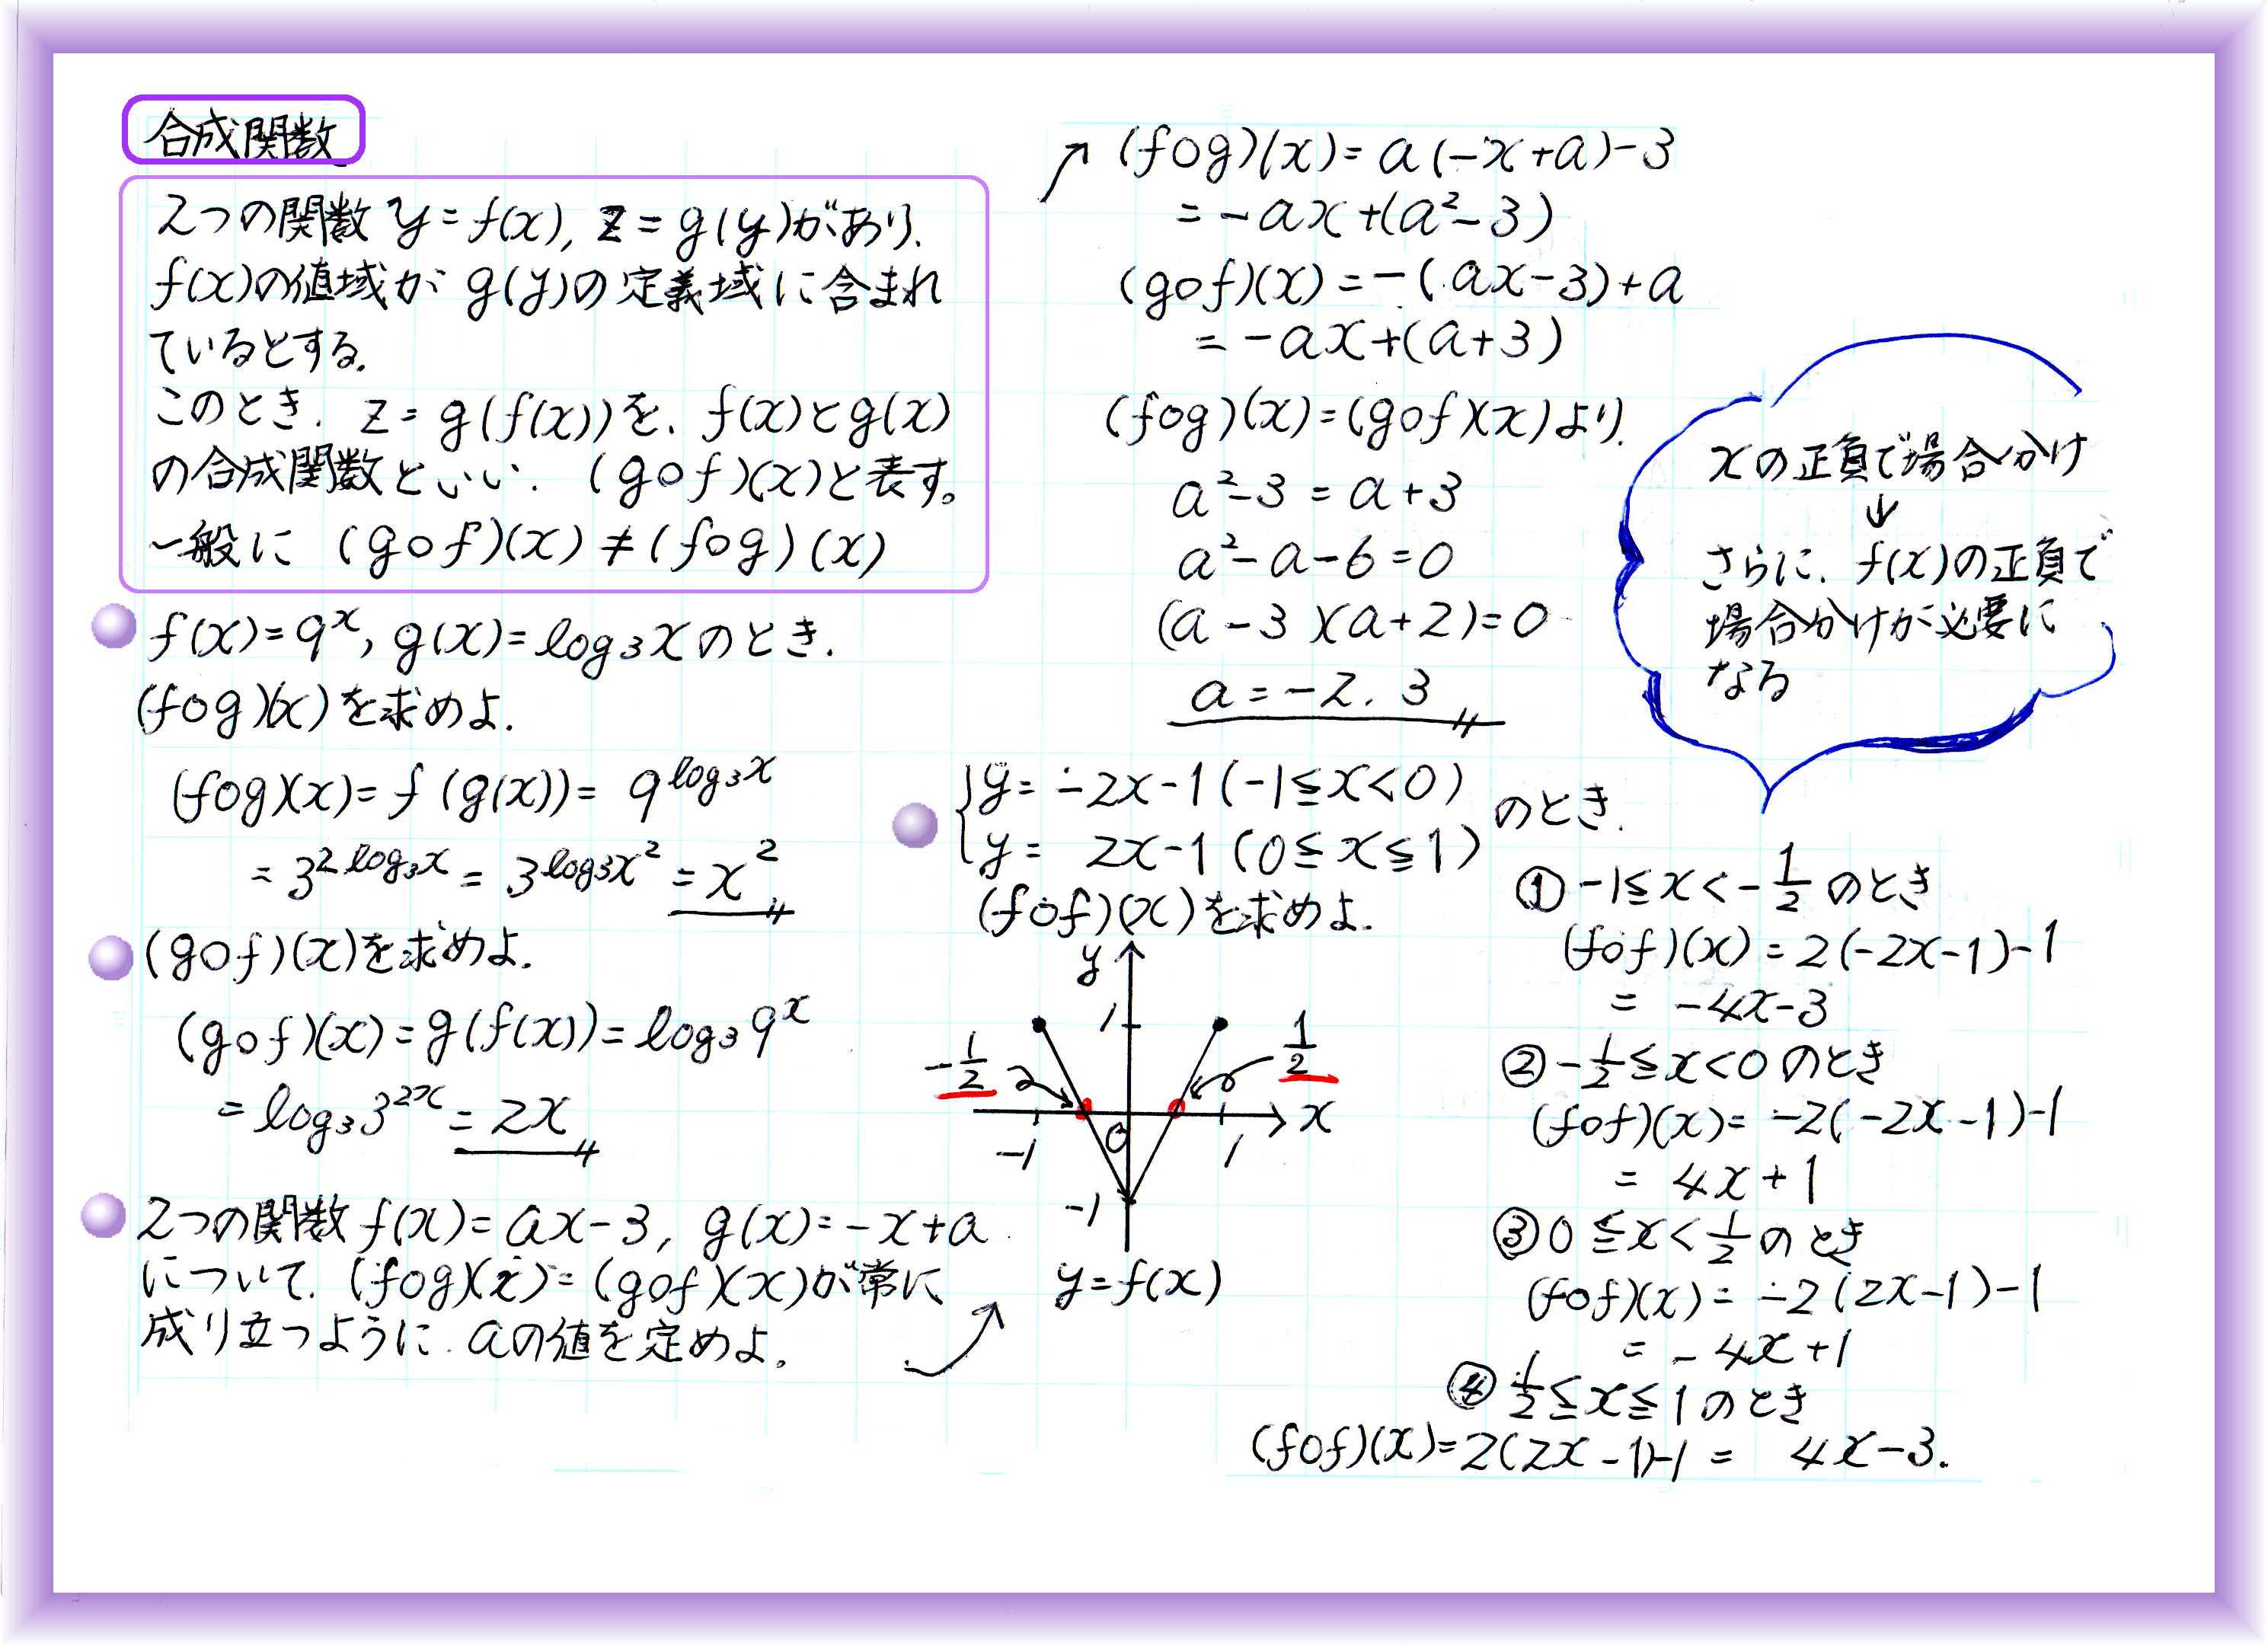 合成関数
2つの関数 y=f(x), z=g(y)があり、
f(x)の値域が g(y)の定義域に含まれ
ているとする。
このとき、z=g(f(x))を、f(x)とg(x)
の合成関数といい、(g∘f)(x)と表す。
一般に (g∘f)(x)≠(f∘g)(x)
f(x)=9^x, g(x)=log₃xのとき、
(f∘g)(x)を求めよ.
(f∘g)(x)=f(g(x))=9^{log₃x}
=3^{2log₃x}=3^{log₃x²}=x²
(g∘f)(x)を求めよ.
(g∘f)(x)=g(f(x))=log₃9^x
=log₃3^{2x}=2x
2つの関数 f(x)=ax-3, g(x)=-x+a
について、(f∘g)(x)=(g∘f)(x)が常に
成り立つように、aの値を定めよ。
(f∘g)(x)=a(-x+a)-3
=-ax+(a²-3)
(g∘f)(x)=-(ax-3)+a
=-ax+(a+3)
(f∘g)(x)=(g∘f)(x)より、
a²-3=a+3
a²-a-6=0
(a-3)(a+2)=0
a=-2, 3
y=-2x-1(-1≦x<0)
y= 2x-1(0≦x≦1)
のとき、
(f∘f)(x)を求めよ.
y
1
-1/2
1/2
x
-1
0
1
-1
y=f(x)
xの正負で場合分け
↓
さらに、f(x)の正負で
場合分けが必要に
なる
① -1≦x<-1/2 のとき
(f∘f)(x)=2(-2x-1)-1
= -4x-3
② -1/2≦x<0 のとき
(f∘f)(x)=-2(-2x-1)-1
= 4x+1
③ 0≦x<1/2 のとき
(f∘f)(x)=-2(2x-1)-1
= -4x+1
④ 1/2≦x≦1 のとき
(f∘f)(x)=2(2x-1)-1= 4x-3.